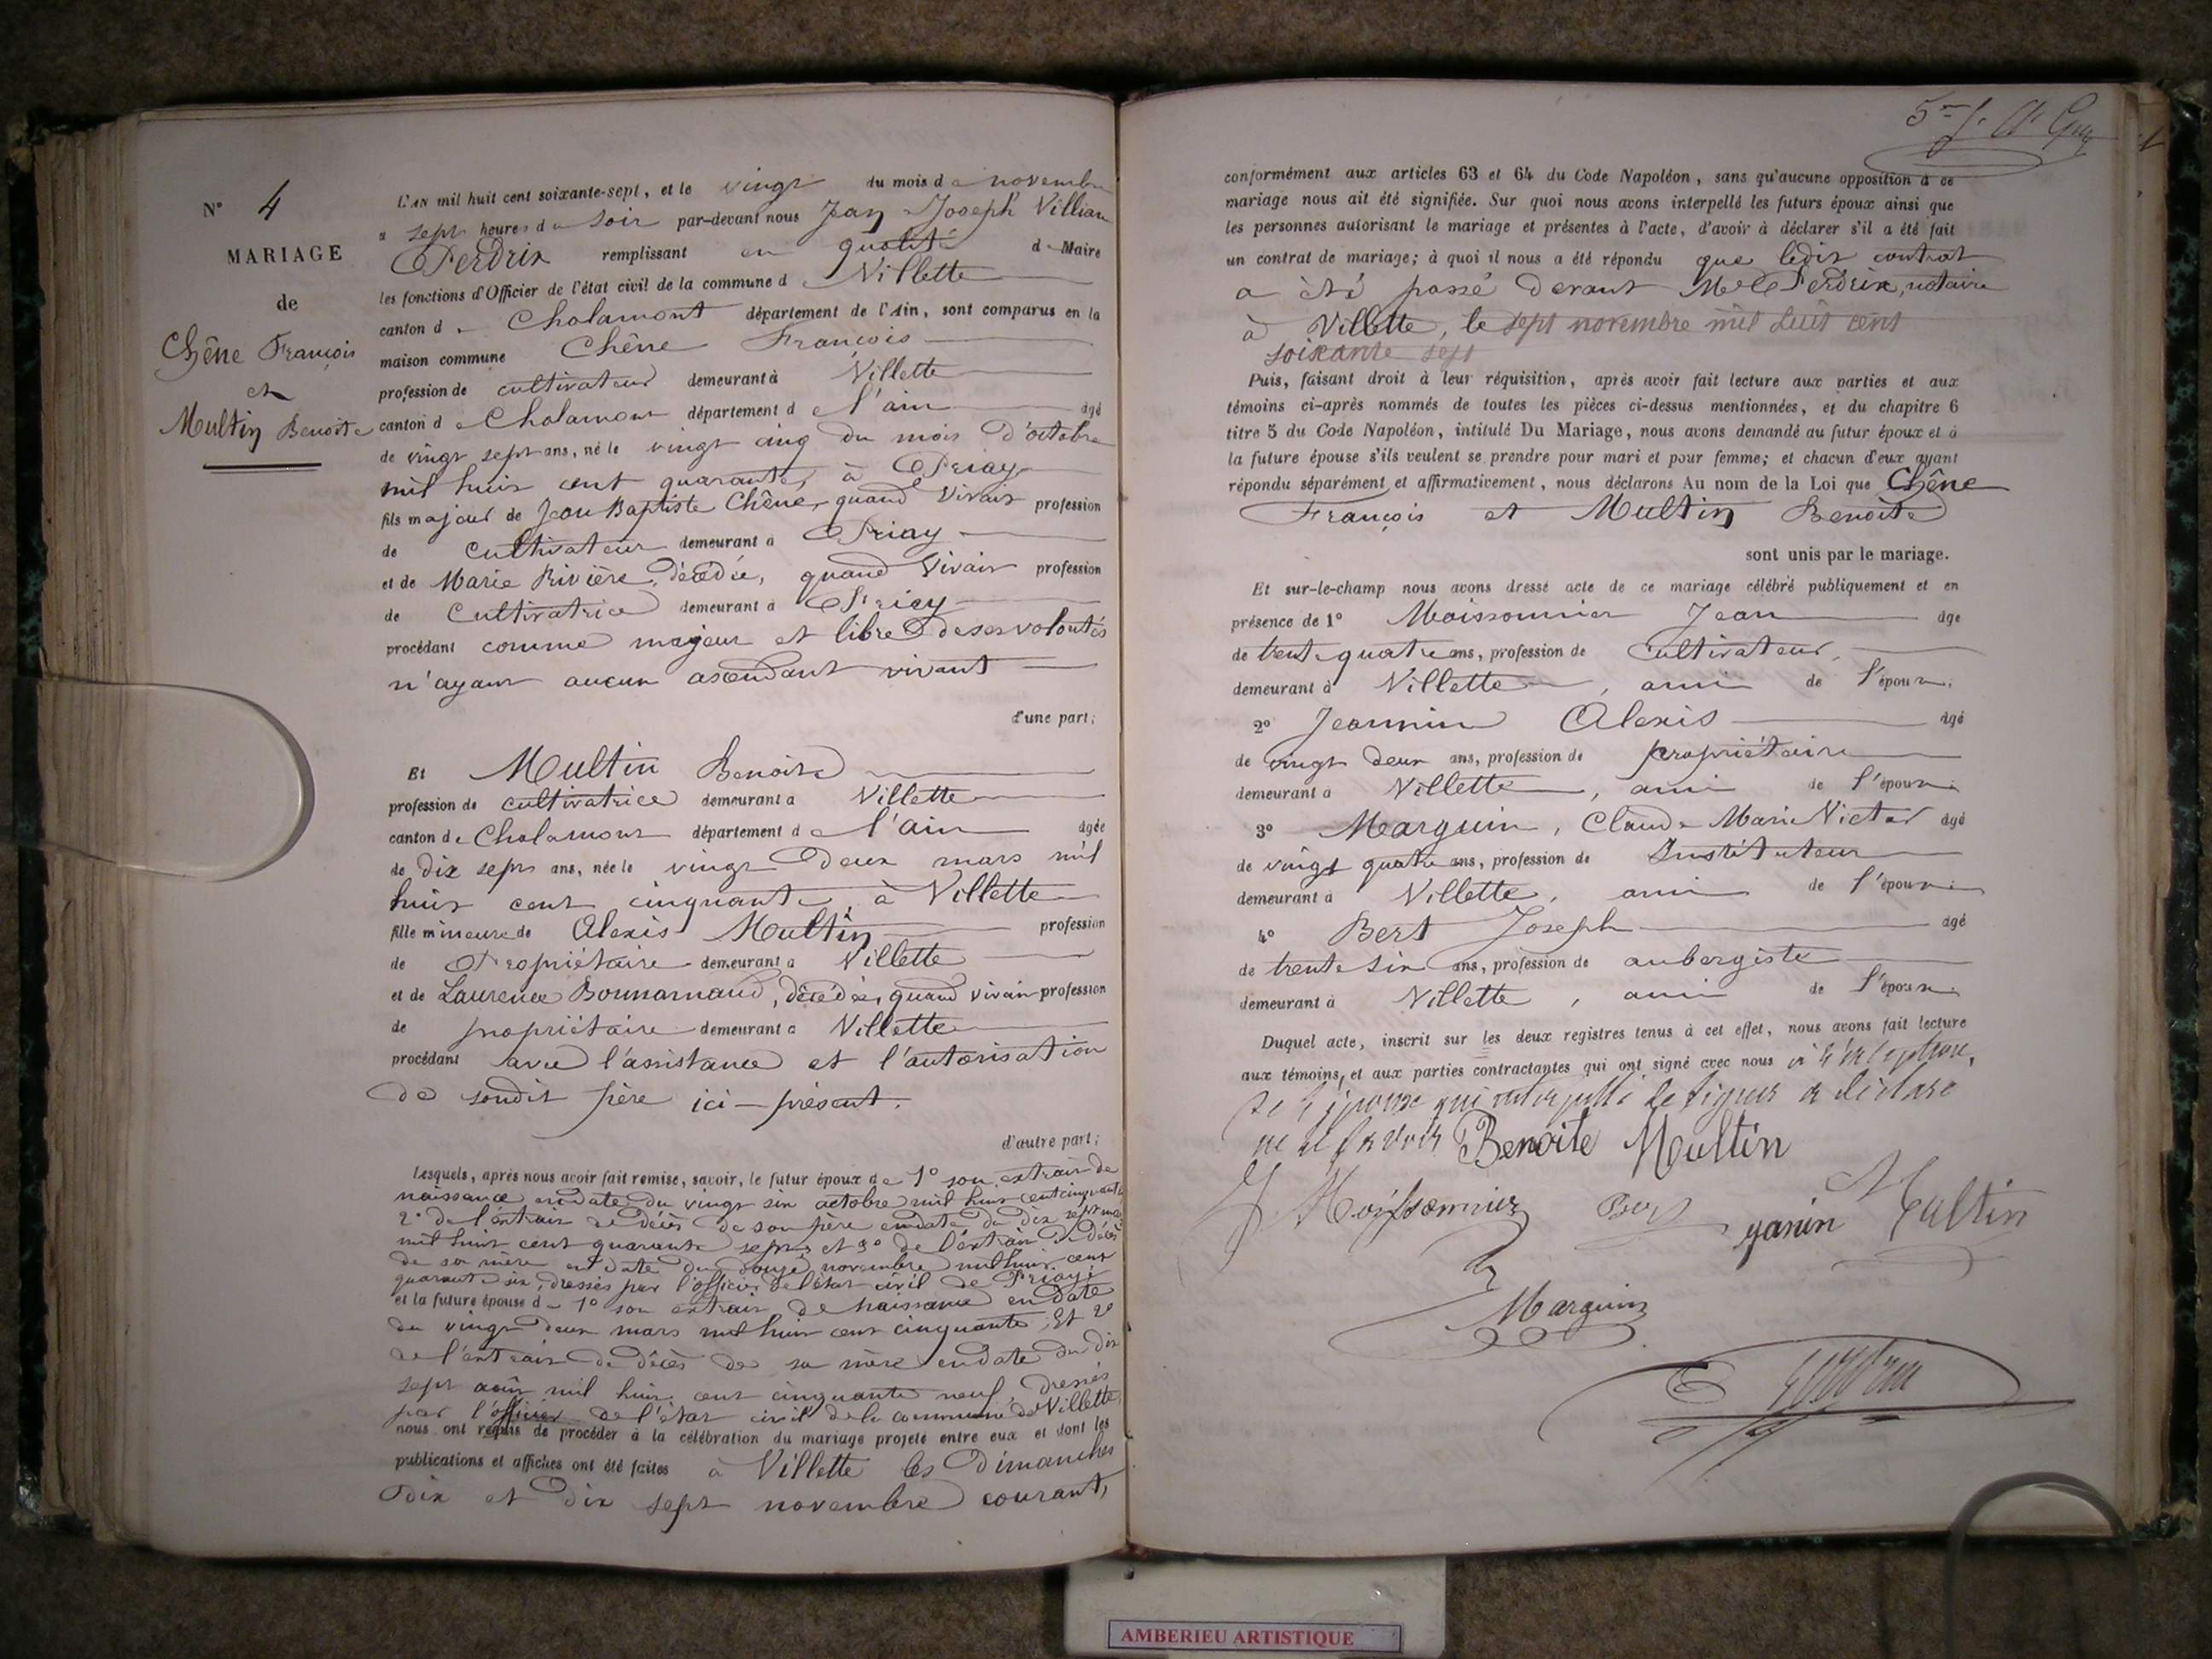 N° 4
MARIAGE
de
Chêne François
et
Multin Benoite
L'AN mil huit cent soixante-sept, et le vingt du mois de novembre
a sept heures du soir par-devant nous Jean Joseph Villiam
Perdrix remplissant en qualité de Maire
les fonctions d'Officier de l'état civil de la commune de Villette
canton de Chalamont département de l'Ain, sont comparus en la
maison commune Chêne François
profession de cultivateur demeurant à Villette
canton de Chalamont département de l'ain âgé
de vingt sept ans, né le vingt cinq du mois d'octobre
mil huit cent quarante, à Priay
fils majeur de Jean Baptiste Chêne, quand vivait profession
de cultivateur demeurant à Priay
et de Marie Rivière, décédée, quand vivait profession
de Cultivatrice demeurant à Priay
procédant comme majeur et libre de ses volontés
n'ayant aucun ascendant vivant
d'une part;
Et Multin Benoite
profession de cultivatrice demeurant à Villette
canton de Chalamont département de l'Ain âgée
de dix sept ans, née le vingt deux mars mil
huit cent cinquante, à Villette
fille mineure de Alexis Multin profession
de Propriétaire demeurant à Villette
et de Laurence Bonnamand, décédée, quand vivait profession
de propriétaire demeurant à Villette
procédant avec l'assistance et l'autorisation
de sondit père ici-présent.
d'autre part;
Lesquels, après nous avoir fait remise, savoir, le futur époux de 1° son extrait de
naissance en date du vingt six octobre mil huit cent cinquante
2° de l'extrait de décès de son père en date du dix sept
mil huit cent quarante sept, et 3° de l'extrait de décès
de sa mère en date du douze novembre mil huit cent
quarante six, dressés par l'officier de l'état civil de Priay;
et la future épouse de 1° son extrait de naissance en date
du vingt deux mars mil huit cent cinquante, Et 2°
de l'extrait de décès de sa mère en date du dix
sept août mil huit cent cinquante neuf, dressés
par l'officier de l'état civil de la commune de Villette,
nous ont requis de procéder à la célébration du mariage projeté entre eux et dont les
publications et affiches ont été faites à Villette les Dimanches
dix et dix sept novembre courant,
conformément aux articles 63 et 64 du Code Napoléon, sans qu'aucune opposition à ce
mariage nous ait été signifiée. Sur quoi nous avons interpellé les futurs époux ainsi que
les personnes autorisant le mariage et présentes à l'acte, d'avoir à déclarer s'il a été fait
un contrat de mariage; à quoi il nous a été répondu que ledit contrat
a été passé devant Me Perdrix, notaire
à Villette, le sept novembre mil huit cent
soixante sept
Puis, faisant droit à leur réquisition, après avoir fait lecture aux parties et aux
témoins ci-après nommés de toutes les pièces ci-dessus mentionnées, et du chapitre 6
titre 5 du Code Napoléon, intitulé Du Mariage, nous avons demandé au futur époux et à
la future épouse s'ils veulent se prendre pour mari et pour femme; et chacun d'eux ayant
répondu séparément et affirmativement, nous déclarons Au nom de la Loi que Chêne
François et Multin Benoite
sont unis par le mariage.
Et sur-le-champ nous avons dressé acte de ce mariage célébré publiquement et en
présence de 1° Moissonnier Jean âgé
de trente quatre ans, profession de Cultivateur,
demeurant à Villette, ami de l'époux.
2° Jeannin Alexis âgé
de vingt deux ans, profession de propriétaire
demeurant à Villette, ami de l'époux.
3° Marguin, Claude Marie Victor âgé
de vingt quatre ans, profession de Instituteur
demeurant à Villette, ami de l'époux
4° Bert Joseph âgé
de trente six ans, profession de aubergiste
demeurant à Villette, ami de l'époux.
Duquel acte, inscrit sur les deux registres tenus à cet effet, nous avons fait lecture
aux témoins, et aux parties contractantes qui ont signé avec nous à l'exception,
de l'époux qui interpellé de signer a déclaré
ne le savoir Benoite Moultin
J. Moissonnier Bert ganin Multin
Marguin
Perdrix
AMBERIEU ARTISTIQUE